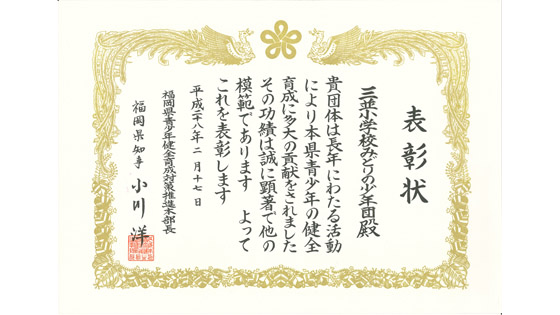 表彰状
三並小学校みどりの少年団殿
貴団体は長年にわたる活動
により本県青少年の健全
育成に多大の貢献をされました
その功績は誠に顕著で他の
模範であります　よって
これを表彰します
平成二十八年二月十七日
福岡県青少年健全育成対策推進本部長
福岡県知事　小川　洋